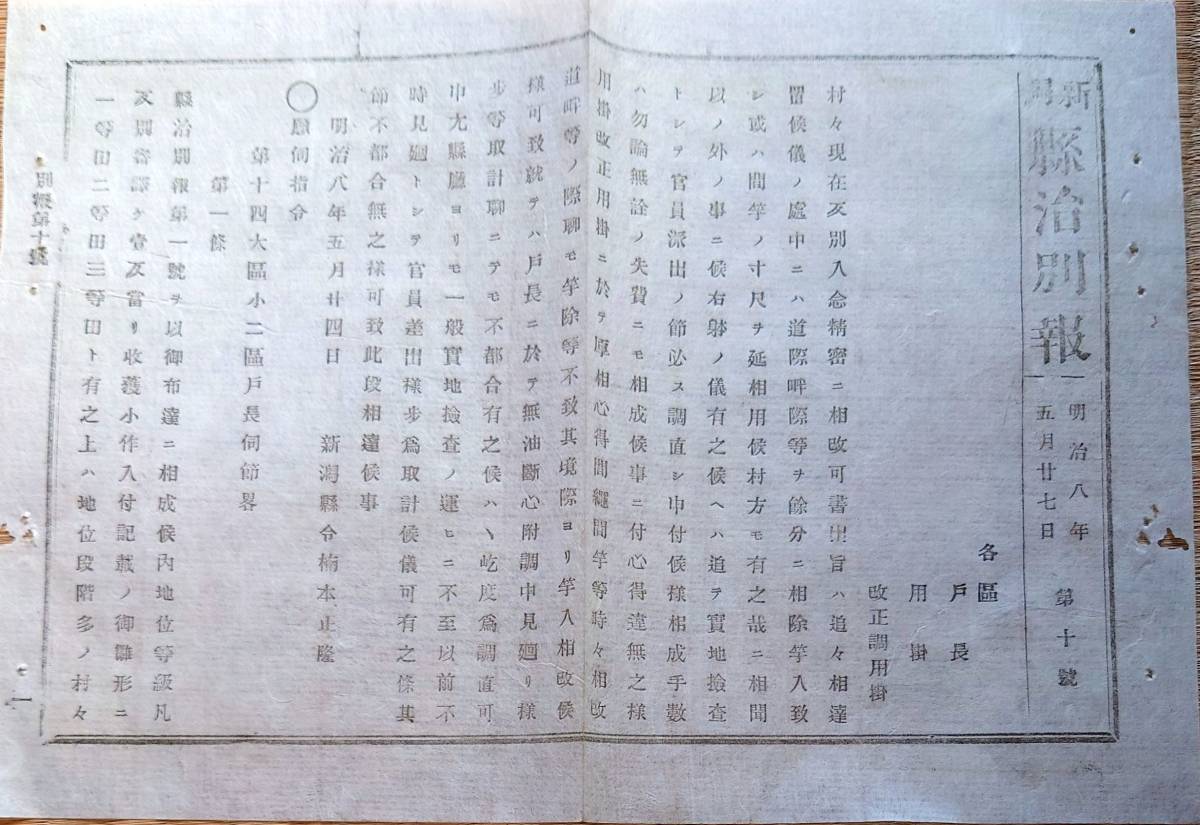 新潟縣治別報
明治八年
五月廿七日
第十號
各區
戸長
用掛
改正調用掛
村々現在反別入念精密ニ相改可書出旨ハ追々相達
留候儀ノ處中ニハ道際畔際等ヲ餘分ニ相除竿入致
シ或ハ間竿ノ寸尺ヲ延相用候村方モ有之哉ニ相聞
以ノ外ノ事ニ候右躰ノ儀有之候ヘハ追テ實地撿査
トシテ官員派出ノ節必ス調直シ申付候様相成手數
ハ勿論無詮ノ失費ニモ相成候事ニ付心得違無之様
用掛改正用掛ニ於テ厚相心得間繩間竿等時々相改
道畔等ノ際聊モ竿除等不致其境際ヨリ竿入相改候
様可致就テハ戸長ニ於テ無油斷心附調中見廻リ様
歩等取計聊ニテモ不都合有之候ハヽ屹度為調直可
申尤縣廳ヨリモ一般實地撿査ノ運ヒニ不至以前不
時見廻トシテ官員差出様歩為取計候儀可有之條其
節不都合無之様可致此段相達候事
明治八年五月廿四日 新潟縣令楠本正隆
○願伺指令
第十四大區小二區戸長伺節畧
第一條
縣治別報第一號ヲ以御布達ニ相成候内地位等級凡
反別書譯ケ壹反當リ收獲小作入付記載ノ御雛形ニ
一等田二等田三等田ト有之上ハ地位段階多ノ村々
別報第十號
一